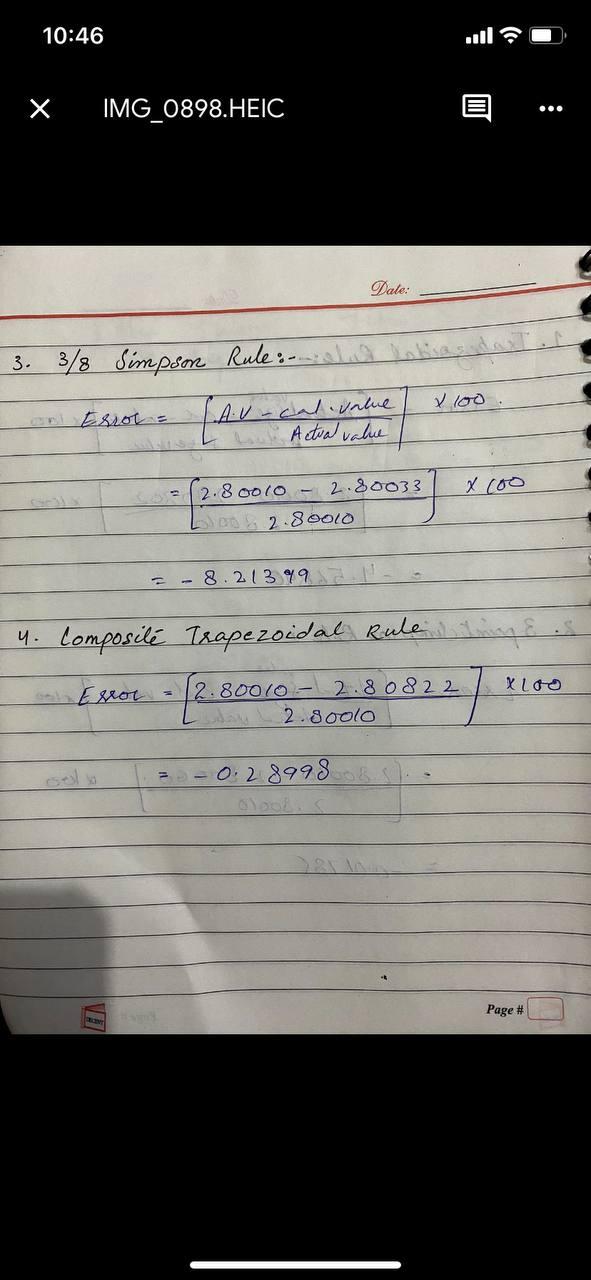 10:46
IMG_0898.HEIC
Date:
3. 3/8 Simpson Rule:-
Error = [A.V - cal. value / Actual value] × 100.
= [2.80010 - 2.80033 / 2.80010] × 100
= - 8.21399
4. Composite Trapezoidal Rule
Error = [2.80010 - 2.80822 / 2.80010] × 100
= - 0.28998
Page #